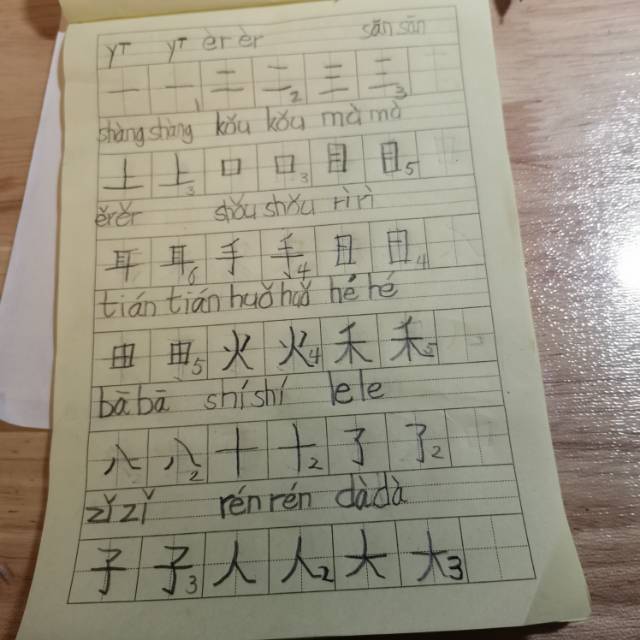 yī yī èr èr sān sān
一 一1 二 二2 三 三3
shàng shàng kǒu kǒu mà mà
上 上3 口 口3 目 目5
ěr ěr shǒu shǒu rì rì
耳 耳6 手 手4 日 日4
tián tián huǒ huǒ hé hé
田 田5 火 火4 禾 禾5
bā bā shí shí le le
八 八2 十 十2 了 了2
zǐ zǐ rén rén dà dà
子 子3 人 人2 大 大3